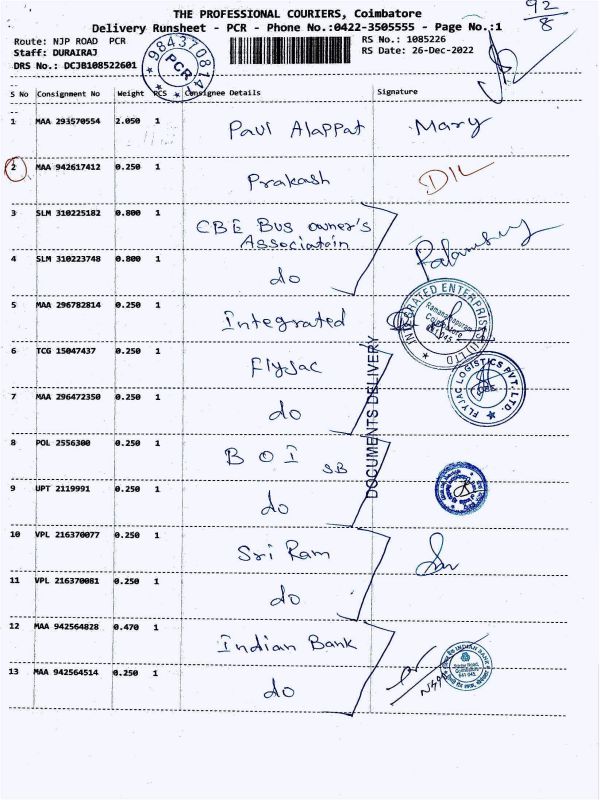 92/8
THE PROFESSIONAL COURIERS, Coimbatore
Delivery Runsheet - PCR - Phone No.:0422-3505555 - Page No.:1
Route: NJP ROAD PCR
RS No.: 1085226
Staff: DURAIRAJ
RS Date: 26-Dec-2022
DRS No.: DCJB108522601
9843708141
PCR
S No Consignment No Weight PCS Consignee Details Signature
1 MAA 293570554 2.050 1 Paul Alappat Mary
2 MAA 942617412 0.250 1 Prakash DIL
3 SLM 310225182 0.800 1 CBE Bus owner's
Associatoin
4 SLM 310223748 0.800 1 do
5 MAA 296782814 0.250 1 Integrated
INTEGRATED ENTERPRISES
Ramanathapuram
Coimbatore
641045
6 TCG 15047437 0.250 1 Flyjac
FLYJAC LOGISTICS PVT. LTD.
CBE
7 MAA 296472350 0.250 1 do
DOCUMENTS DELIVERY
8 POL 2556300 0.250 1 B O I SB
9 UPT 2119991 0.250 1 do
10 VPL 216370077 0.250 1 Sri Ram
11 VPL 216370081 0.250 1 do
12 MAA 942564828 0.470 1 Indian Bank
INDIAN BANK
13 MAA 942564514 0.250 1 do